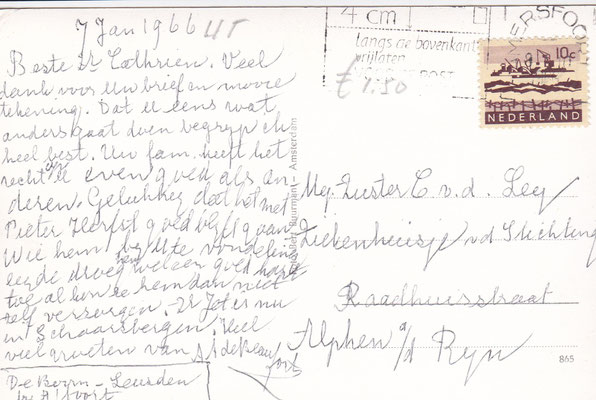 7 Jan 1966 UT
Beste Zr Cathrien. Veel
dank voor Uw brief en mooie
tekening. Dat U eens wat
anders gaat doen begryp ik
heel best. Uw fam. heeft het
recht op U even goed als an
deren. Gelukkig dat het met
Pieter goed blyft gaan
Wie hem te vondeling
legde droeg hem wel een goed hart
toe al kon ze hem dan niet
zelf verzorgen. Zr Jet is nu
in Schaarsbergen. Veel
veel groeten van
De Boom - Leusden
by A'foort
4 cm
langs de bovenkant
vrijlaten
POST
£ 1.50
AMERSFOO
10c
NEDERLAND
Amsterdam
Mej. Zuster C. v. d. Ley
Ziekenhuisje v d Stichting
Raadhuisstraat
Alphen a/d Ryn
865